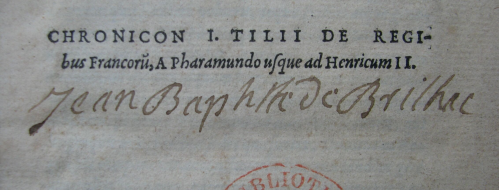 CHRONICON I. TILII DE REGI-
bus Francorũ, A Pharamundo usque ad Henricum II.
Jean Baptiste De Brilhac
BIBLIOT